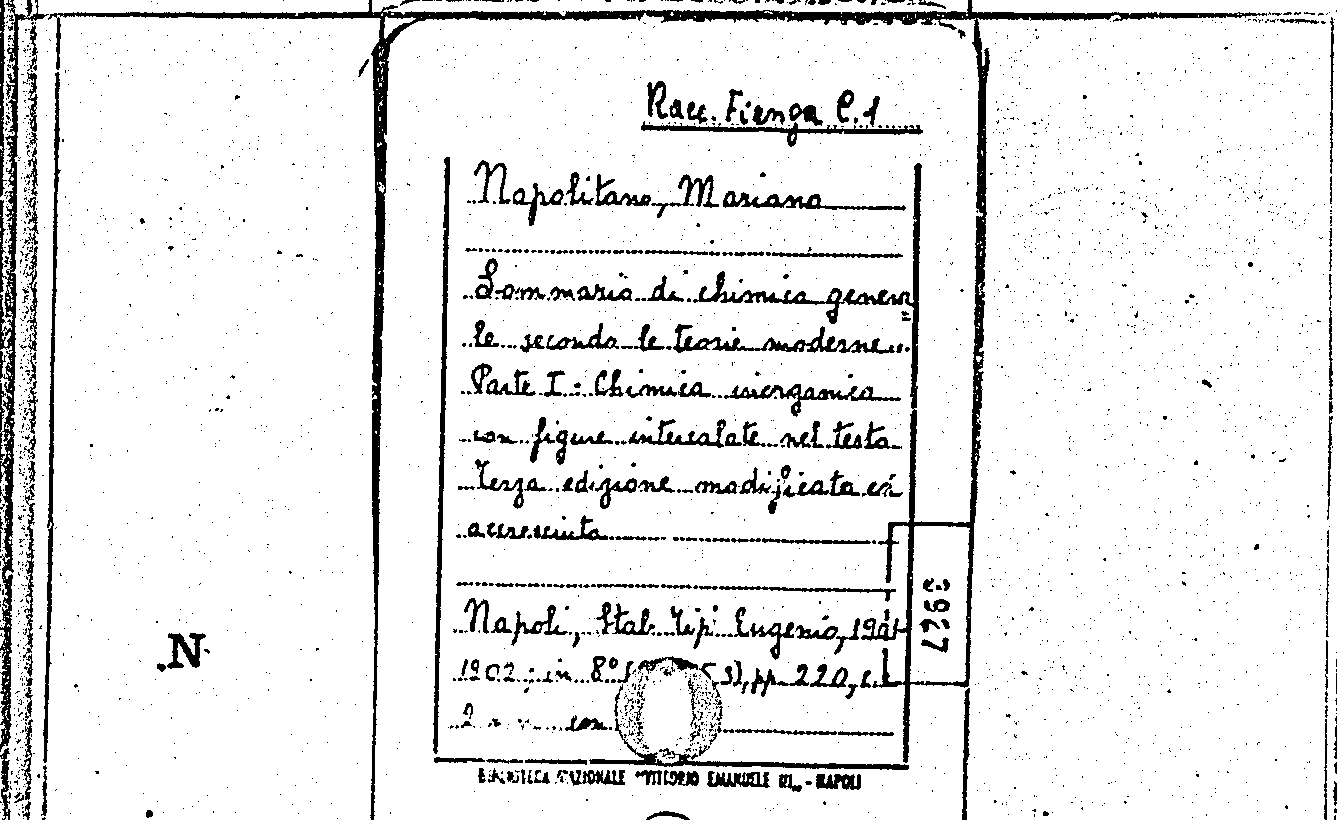 Racc. Fienga C.1
Napolitano, Mariano
Sommario di chimica genera
le secondo le teorie moderne...
Parte I: Chimica inorganica
con figure intercalate nel testo
Terza edizione modificata ed
accresciuta
Napoli, Stab. Tip. Eugenio, 1901-
1902; in 8° s), pp. 220, c.
2 con
BIBLIOTECA NAZIONALE "VITTORIO EMANUELE III„ - NAPOLI
.N